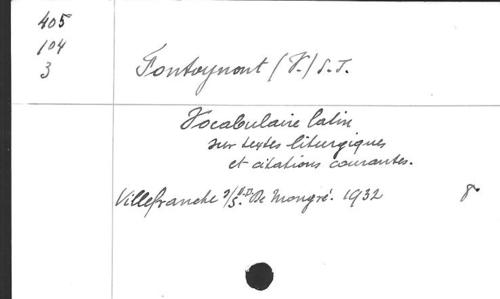 405
104
3
Fontoynont (V.) S.J.
Vocabulaire latin
sur textes liturgiques
et citations courantes.
Villefranche s/S. De Mongré. 1932 8°